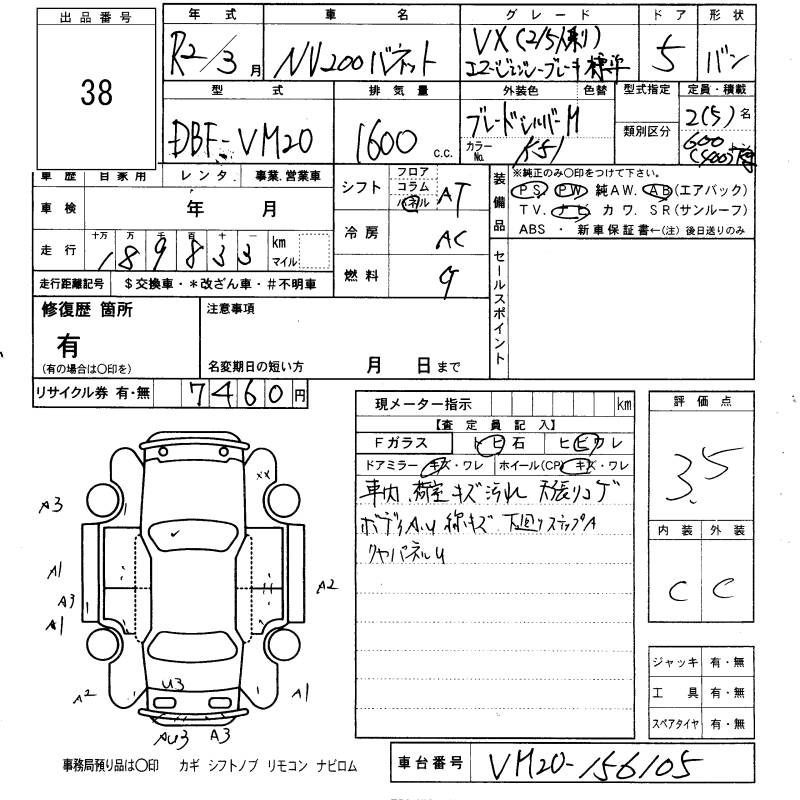 出品番号 年式 車名 グレード ドア 形状
38 R2/3月 NV200バネット VX(2/5人乗り) 5 バン
エマージェンシーブレーキ標準
型式 排気量 外装色 色替 型式指定 定員・積載
DBF-VM20 1600 c.c. ブレードシルバーM 2(5)名
カラーNo. K51 類別区分 600
車歴 自家用 レンタ. 事業.営業車 シフト フロア コラム パネル AT 装備品 ※純正のみ〇印をつけて下さい。
PS PW 純AW. AB(エアバック)
車検 年 月 TV. ナビ カワ. SR(サンルーフ)
冷房 AC ABS ・ 新車保証書←(注) 後日送りのみ
走行 十万 万 千 百 十 一 189833 km マイル
燃料 G セールスポイント
走行距離記号 $交換車・*改ざん車・#不明車
修復歴 箇所 注意事項
有
(有の場合は〇印を) 名変期日の短い方 月 日まで
リサイクル券 有・無 7460円
現メーター指示 km 評価点
【査定員記入】
Fガラス トビ石 ヒビワレ 3.5
ドアミラー キズ・ワレ ホイール(CP) キズ・ワレ
車内、荷室キズ汚れ 天張りコゲ
ボディA.U 線キズ 下廻りステップA 内装 外装
リヤパネルU
C C
XX
A3
A1 A2
A3
A1
U3
A2 A1
AU3 A3
ジャッキ 有・無
工具 有・無
スペアタイヤ 有・無
事務局預り品は〇印 カギ シフトノブ リモコン ナビロム 車台番号 VM20-156105